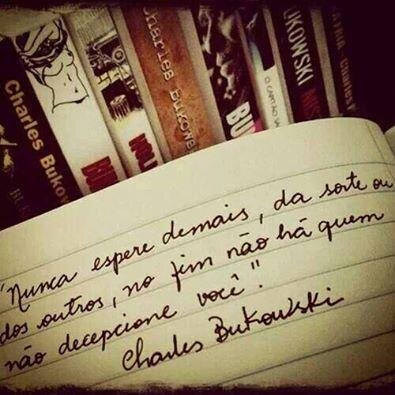 Charles Bukow
BU
HOLL
Charles Bukows
BU
UKOWSKI
"Nunca espere demais, da sorte ou
dos outros, no fim não há quem
não decepcione você".
Charles Bukowski